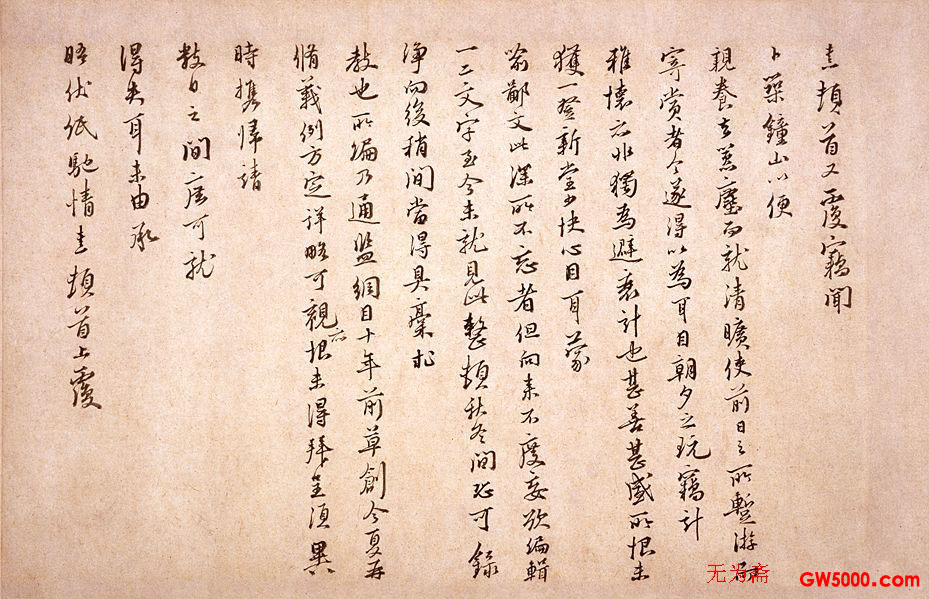 熹頓首又覆竊聞
卜築鐘山以便
親養去囂塵而就清曠使前日之所暫游而
寄賞者今遂得以為耳目朝夕之玩竊計
雅懷亦非獨為避衰計也甚善甚盛所恨未
獲一登新堂少快心目耳蒙
喻鄙文此深所不忘者但向來不度妄欲編輯
一二文字至今未就見此整頓秋冬間恐可錄
淨向後稍間當得具稾求
教也所編乃通鑑綱目十年前草創今夏再
脩義例方定詳略可觀亦恨未得拜呈須異
時携歸請
數日之間庶可就
得失耳未由承
晤伏紙馳情熹頓首上覆
无为斋
GW5000.com